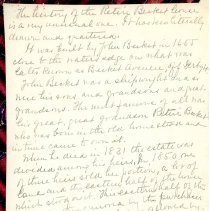 The history of the Peter Becket house
is a very unusual one. It has been literally
drawn and quartered.
It was built by John Becket in 1655
close to the waters edge on what was
later known as Becket Avenue, off Derby St.
John Becket was a shipwright and so
were his sons and grandsons and great
grandsons. The most famous of all was
his great, great grandson Retire Becket
who was born in the old homestead and
in time came to own it.
When he died in 1831 the estate was
divided among his heirs. In 1850 one
of these heirs sold his portion, a lot of
land and the eastern half of the house
which stood on it. This eastern half of the
by the purchaser